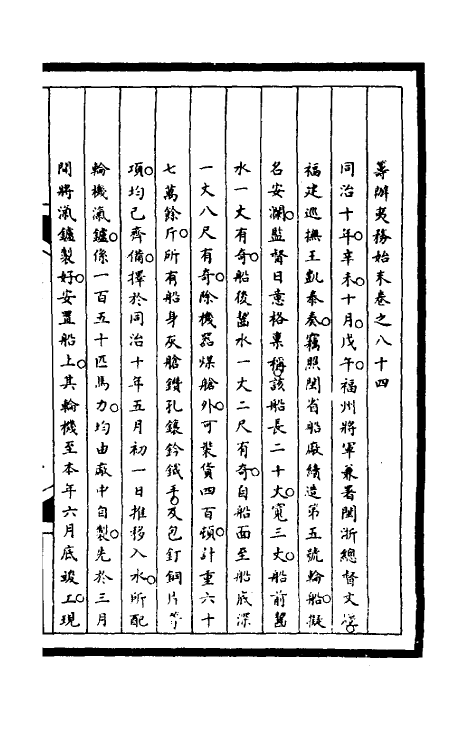 籌辦夷務始末卷之八十四
同治十年。辛未。十月。戊午。福州將軍兼署閩浙總督文煜。
福建巡撫王凱泰奏。竊照閩省船廠續造第五號輪船。擬
名安瀾。監督日意格稟稱。該船長二十丈。寬三丈。船前醤
水一丈有奇。船後醤水一丈二尺有奇。自船面至船底深
一丈八尺有奇。除機器煤艙外。可裝貨四百頓。計重六十
七萬餘斤。所有船身灰艙鑽孔鑲鈐鐵手。及包釘銅片等
項。均已齊備。擇於同治十年五月初一日推移入水。所配
輪機瀛鑪。係一百五十匹馬力。均由廠中自製。先於三月
間將瀛鑪製好。安置船上。其輪機至本年六月底竣工。現